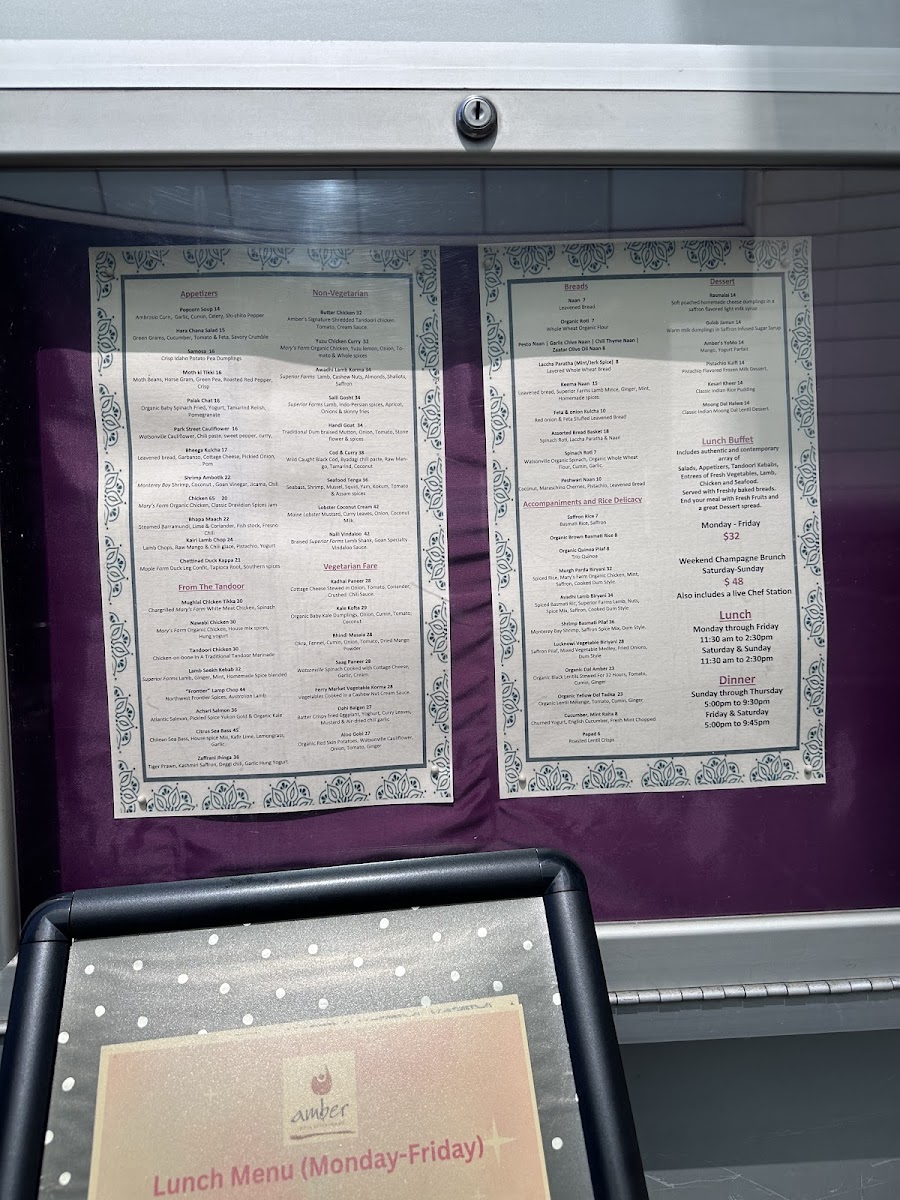 Appetizers
Popcorn Soup 14
Ambrosio Corn, Garlic, Cumin, Celery, Shishito Pepper
Hara Chana Salad 15
Green Grains, Cucumber, Tomato & Feta, Savory Crumble
Samosa 16
Crisp Idaho Potato Pea Dumplings
Moth ki Tikki 16
Moth Beans, Horse Gram, Green Pea, Roasted Red Pepper,
Crisp
Palak Chat 16
Organic Baby Spinach Fried, Yogurt, Tamarind Relish,
Pomegranate
Park Street Cauliflower 16
Watsonville Cauliflower, Chili paste, sweet pepper, curry,
Bheega Kulcha 17
Leavened bread, Garbanzo, Cottage Cheese, Pickled Onion,
Pom
Shrimp Ambotik 22
Monterey Bay Shrimp, Coconut, Goan Vinegar, Jicama, Chili
Chicken 65 20
Mary's Farm Organic Chicken, Classic Dravidian Spices Jam
Bhapa Maach 22
Steamed Barramundi, Lime & Coriander, Fish stock, Fresno
Chili
Kairi Lamb Chop 24
Lamb Chops, Raw Mango & Chili glaze, Pistachio, Yogurt
Chettinad Duck Kappa 21
Maple Farm Duck Leg Confit, Tapioca Root, Southern spices
From The Tandoor
Mughlai Chicken Tikka 30
Chargrilled Mary's Farm White Meat Chicken, Spinach
Nawabi Chicken 30
Mary's Farm Organic Chicken, House mix spices,
Hung yogurt
Tandoori Chicken 30
Chicken-on-bone In A Traditional Tandoor Marinade
Lamb Seekh Kebab 32
Superior Farms Lamb, Ginger, Mint, Homemade Spice blended
"Frontier" Lamp Chop 44
Northwest Frontier Spices, Australian Lamb
Achari Salmon 36
Atlantic Salmon, Pickled Spice Yukon Gold & Organic Kale
Citrus Sea Bass 45
Chilean Sea Bass, House spice Mix, Kafir Lime, Lemongrass,
Garlic
Zaffrani Jhinga 36
Tiger Prawn, Kashmiri Saffron, Deggi chili, Garlic Hung Yogurt
Non-Vegetarian
Butter Chicken 32
Amber's Signature Shredded Tandoori chicken,
Tomato, Cream Sauce
Yuzu Chicken Curry 32
Mary's Farm Organic Chicken, Yuzu lemon, Onion, To-
mato & Whole spices
Awadhi Lamb Korma 34
Superior Farms Lamb, Cashew Nuts, Almonds, Shallots,
Saffron
Salli Gosht 34
Superior Farms Lamb, Indo-Persian spices, Apricot,
Onions & skinny fries
Handi Goat 34
Traditional Dum braised Mutton, Onion, Tomato, Stone
flower & spices
Cod & Curry 38
Wild Caught Black Cod, Byadagi chili paste, Raw Man-
go, Tamarind, Coconut
Seafood Tenga 36
Seabass, Shrimp, Mussel, Squid, Yuri, Kokum, Tomato
& Assam spices
Lobster Coconut Cream 42
Maine Lobster Mustard, Curry Leaves, Onion, Coconut
Milk
Nalli Vindaloo 42
Braised Superior Farms Lamb Shank, Goan Specialty
Vindaloo Sauce
Vegetarian Fare
Kadhai Paneer 28
Cottage Cheese Stewed in Onion, Tomato, Coriander,
Crushed, Chili Sauce
Kale Kofta 29
Organic Baby Kale Dumplings, Onion, Cumin, Tomato,
Coconut
Bhindi Masala 28
Okra, Fennel, Cumin, Onion, Tomato, Dried Mango
Powder
Saag Paneer 28
Watsonville Spinach Cooked with Cottage Cheese,
Garlic, Cream
Ferry Market Vegetable Korma 28
Vegetables Cooked in a Cashew Nut Cream Sauce
Dahi Baigan 27
Batter Crispy fried Eggplant, Yoghurt, Curry Leaves,
Mustard & Air-dried chili garlic
Aloo Gobi 27
Organic Red Skin Potatoes, Watsonville Cauliflower,
Onion, Tomato, Ginger
Breads
Naan 7
Leavened Bread
Organic Roti 7
Whole Wheat Organic Flour
Pesto Naan | Garlic Chive Naan | Chili Thyme Naan |
Zaatar Olive Oil Naan 8
Laccha Paratha (Mint/Jerk Spice) 8
Layered Whole Wheat Bread
Keema Naan 15
Leavened bread, Superior Farms Lamb Mince, Ginger, Mint,
Homemade spices
Feta & onion Kulcha 10
Red Onion & Feta Stuffed Leavened Bread
Assorted Bread Basket 18
Spinach Roti, Laccha Paratha & Naan
Spinach Roti 7
Watsonville Organic Spinach, Organic Whole Wheat
Flour, Cumin, Garlic
Peshwari Naan 10
Coconut, Maraschino Cherries, Pistachio, Leavened Bread
Accompaniments and Rice Delicacy
Saffron Rice 7
Basmati Rice, Saffron
Organic Brown Basmati Rice 8
Organic Quinoa Pilaf 8
Trio Quinoa
Murgh Parda Biryani 32
Spiced Rice, Mary's Farm Organic Chicken, Mint,
Saffron, Cooked Dum Style
Avadhi Lamb Biryani 34
Spiced Basmati Ric, Superior Farms Lamb, Nuts,
Spice Mix, Saffron, Cooked Dum Style
Shrimp Basmati Pilaf 36
Monterey Bay Shrimp, Saffron Spice Mix, Dum Style
Lucknowi Vegetable Biryani 28
Saffron Pilaf, Mixed Vegetable Medley, Fried Onions,
Dum Style
Organic Dal Amber 23
Organic Black Lentils Stewed For 22 Hours, Tomato,
Cumin, Ginger
Organic Yellow Dal Tadka 23
Organic Lentil Melange, Tomato, Cumin, Ginger
Cucumber, Mint Raita 8
Churned Yogurt, English Cucumber, Fresh Mint Chopped
Papad 6
Roasted Lentil Crisps
Dessert
Rasmalai 14
Soft poached homemade cheese dumplings in a
saffron flavored light milk syrup
Gulab Jamun 14
Warm milk dumplings in Saffron Infused Sugar Syrup
Amber's FoMo 14
Mango, Yogurt Parfait
Pistachio Kulfi 14
Pistachio flavored Frozen Milk Dessert,
Kesari Kheer 14
Classic Indian Rice Pudding
Moong Dal Halwa 14
Classic Indian Moong Dal Lentil Dessert
Lunch Buffet
Includes authentic and contemporary
array of
Salads, Appetizers, Tandoori Kebabs,
Entrees of Fresh Vegetables, Lamb,
Chicken and Seafood.
Served with Freshly baked breads.
End your meal with Fresh Fruits and
a great Dessert spread.
Monday - Friday
$32
Weekend Champagne Brunch
Saturday-Sunday
$ 48
Also includes a live Chef Station
Lunch
Monday through Friday
11:30 am to 2:30pm
Saturday & Sunday
11:30 am to 2:30pm
Dinner
Sunday through Thursday
5:00pm to 9:30pm
Friday & Saturday
5:00pm to 9:45pm
amber
Lunch Menu (Monday-Friday)